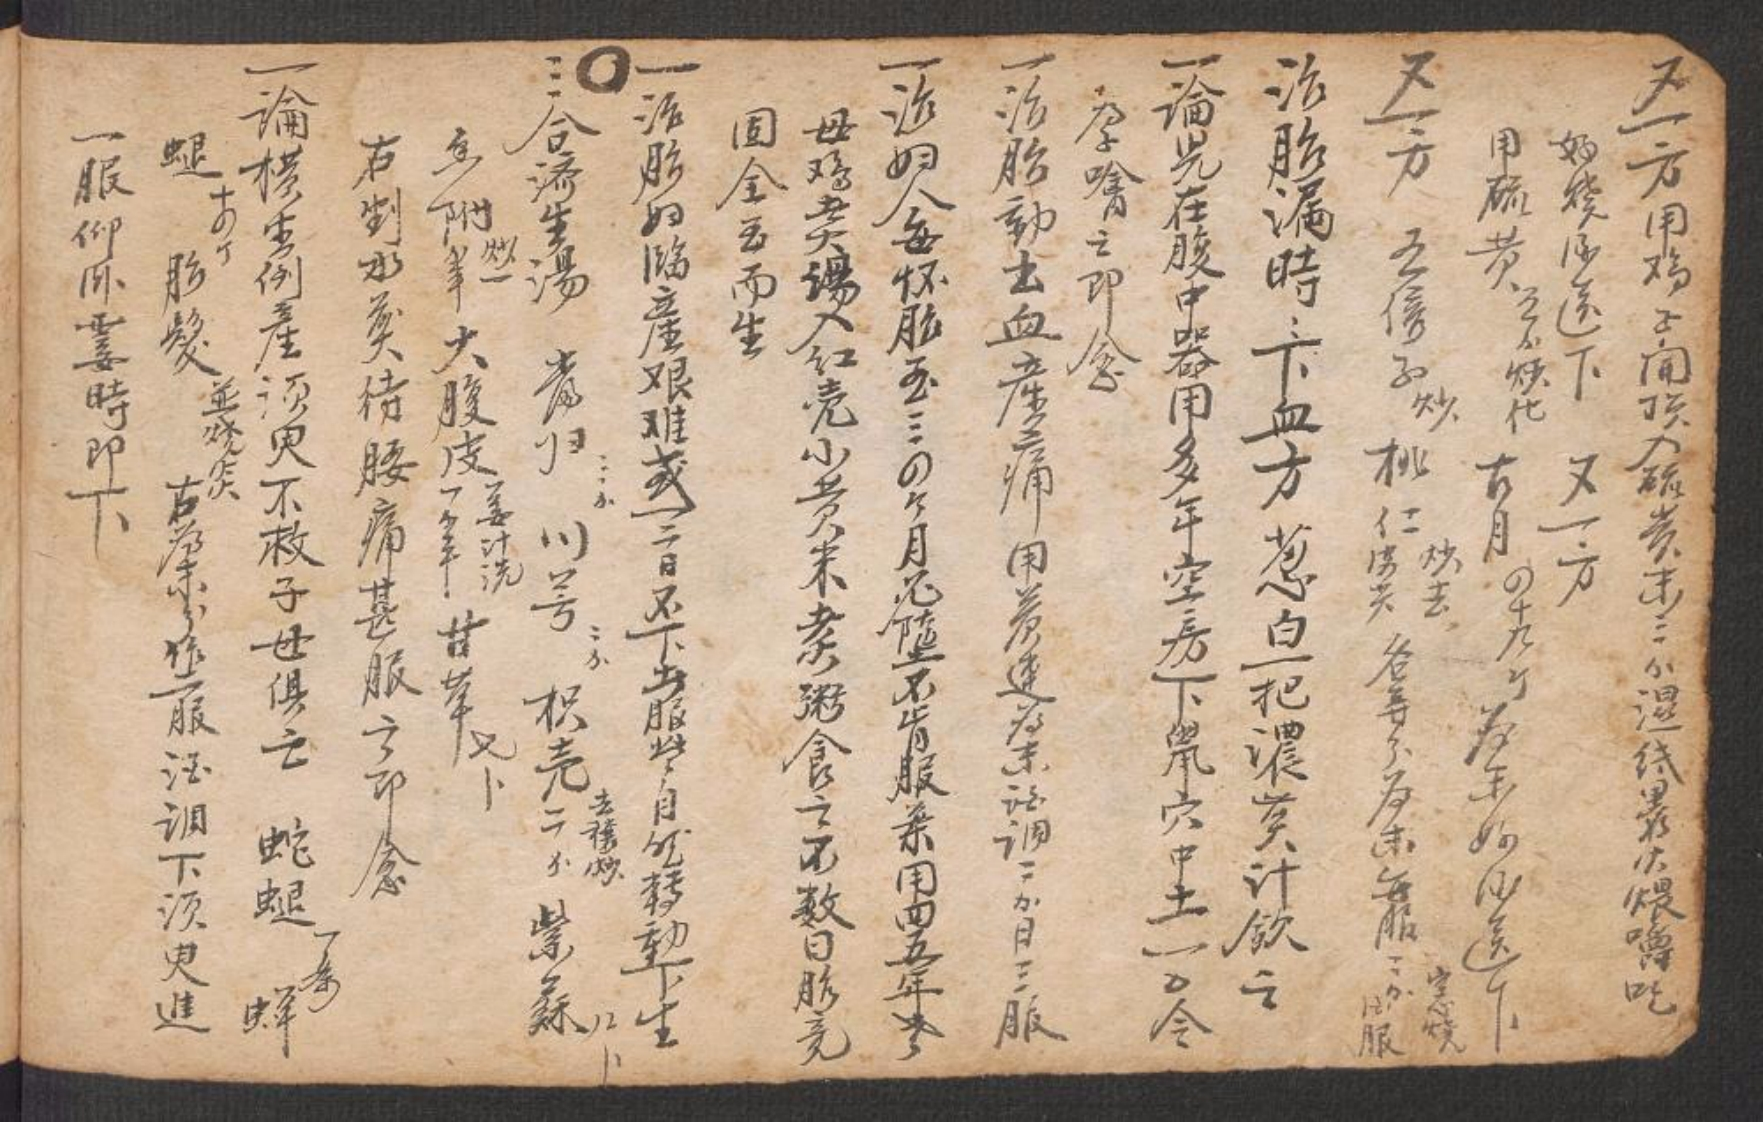 又一方用鸡子一介開頂入硫黄末三分湿纸裹火煨嚼吃
好烧酒送下 又一方
用硫黄 古月 四十九个為末好酒送下
又一方 五倍子炒 桃仁炒去皮尖 各等分為末每服二分 酒服
治胎漏時時下血方葱白一把濃煎汁飲之
一論兒在腹中器用多年空房下鼠穴中土一口令
孕噙之即念
一治胎動出血產痛用黄連為末酒調二分日三服
一治妇人每怀胎至三四个月必墮不肯服藥用四五年老
母鸡煮湯入红壳小黄米煮粥食之不数日胎竟
固全至而生
一治胎妇臨產艰难或一二日不下者服此自然轉動下生
三合濟生湯 當归三分 川芎二分 枳壳二分去穰炒 紫蘇八卜
香附炒一半 大腹皮姜汁洗一分半 甘草七卜
右剉水煎待腰痛甚服之即念
一論横生倒產须臾不救子母俱亡 蛇蜕一条 蝉
蜕十四个 胎髮並烧灰 右為末分作二服酒調下须臾進
一服仰卧霎時即下